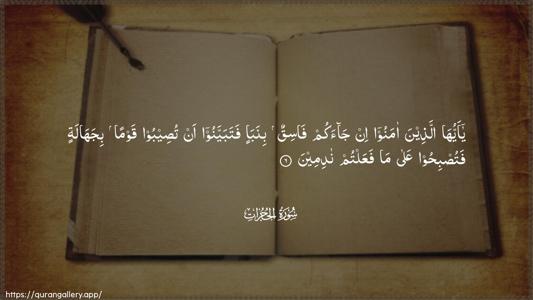 يٰٓاَيُّهَا الَّذِيْنَ اٰمَنُوْۤا اِنْ جَآءَكُمْ فَاسِقٌۢ بِنَبَاٍ فَتَبَيَّنُوْۤا اَنْ تُصِيْبُوْا قَوْمًاۢ بِجَهَالَةٍ
فَتُصْبِحُوْا عَلٰى مَا فَعَلْتُمْ نٰدِمِيْنَ ۝٦
سُوْرَةُ الحُجُرَاتِ
https://qurangallery.app/